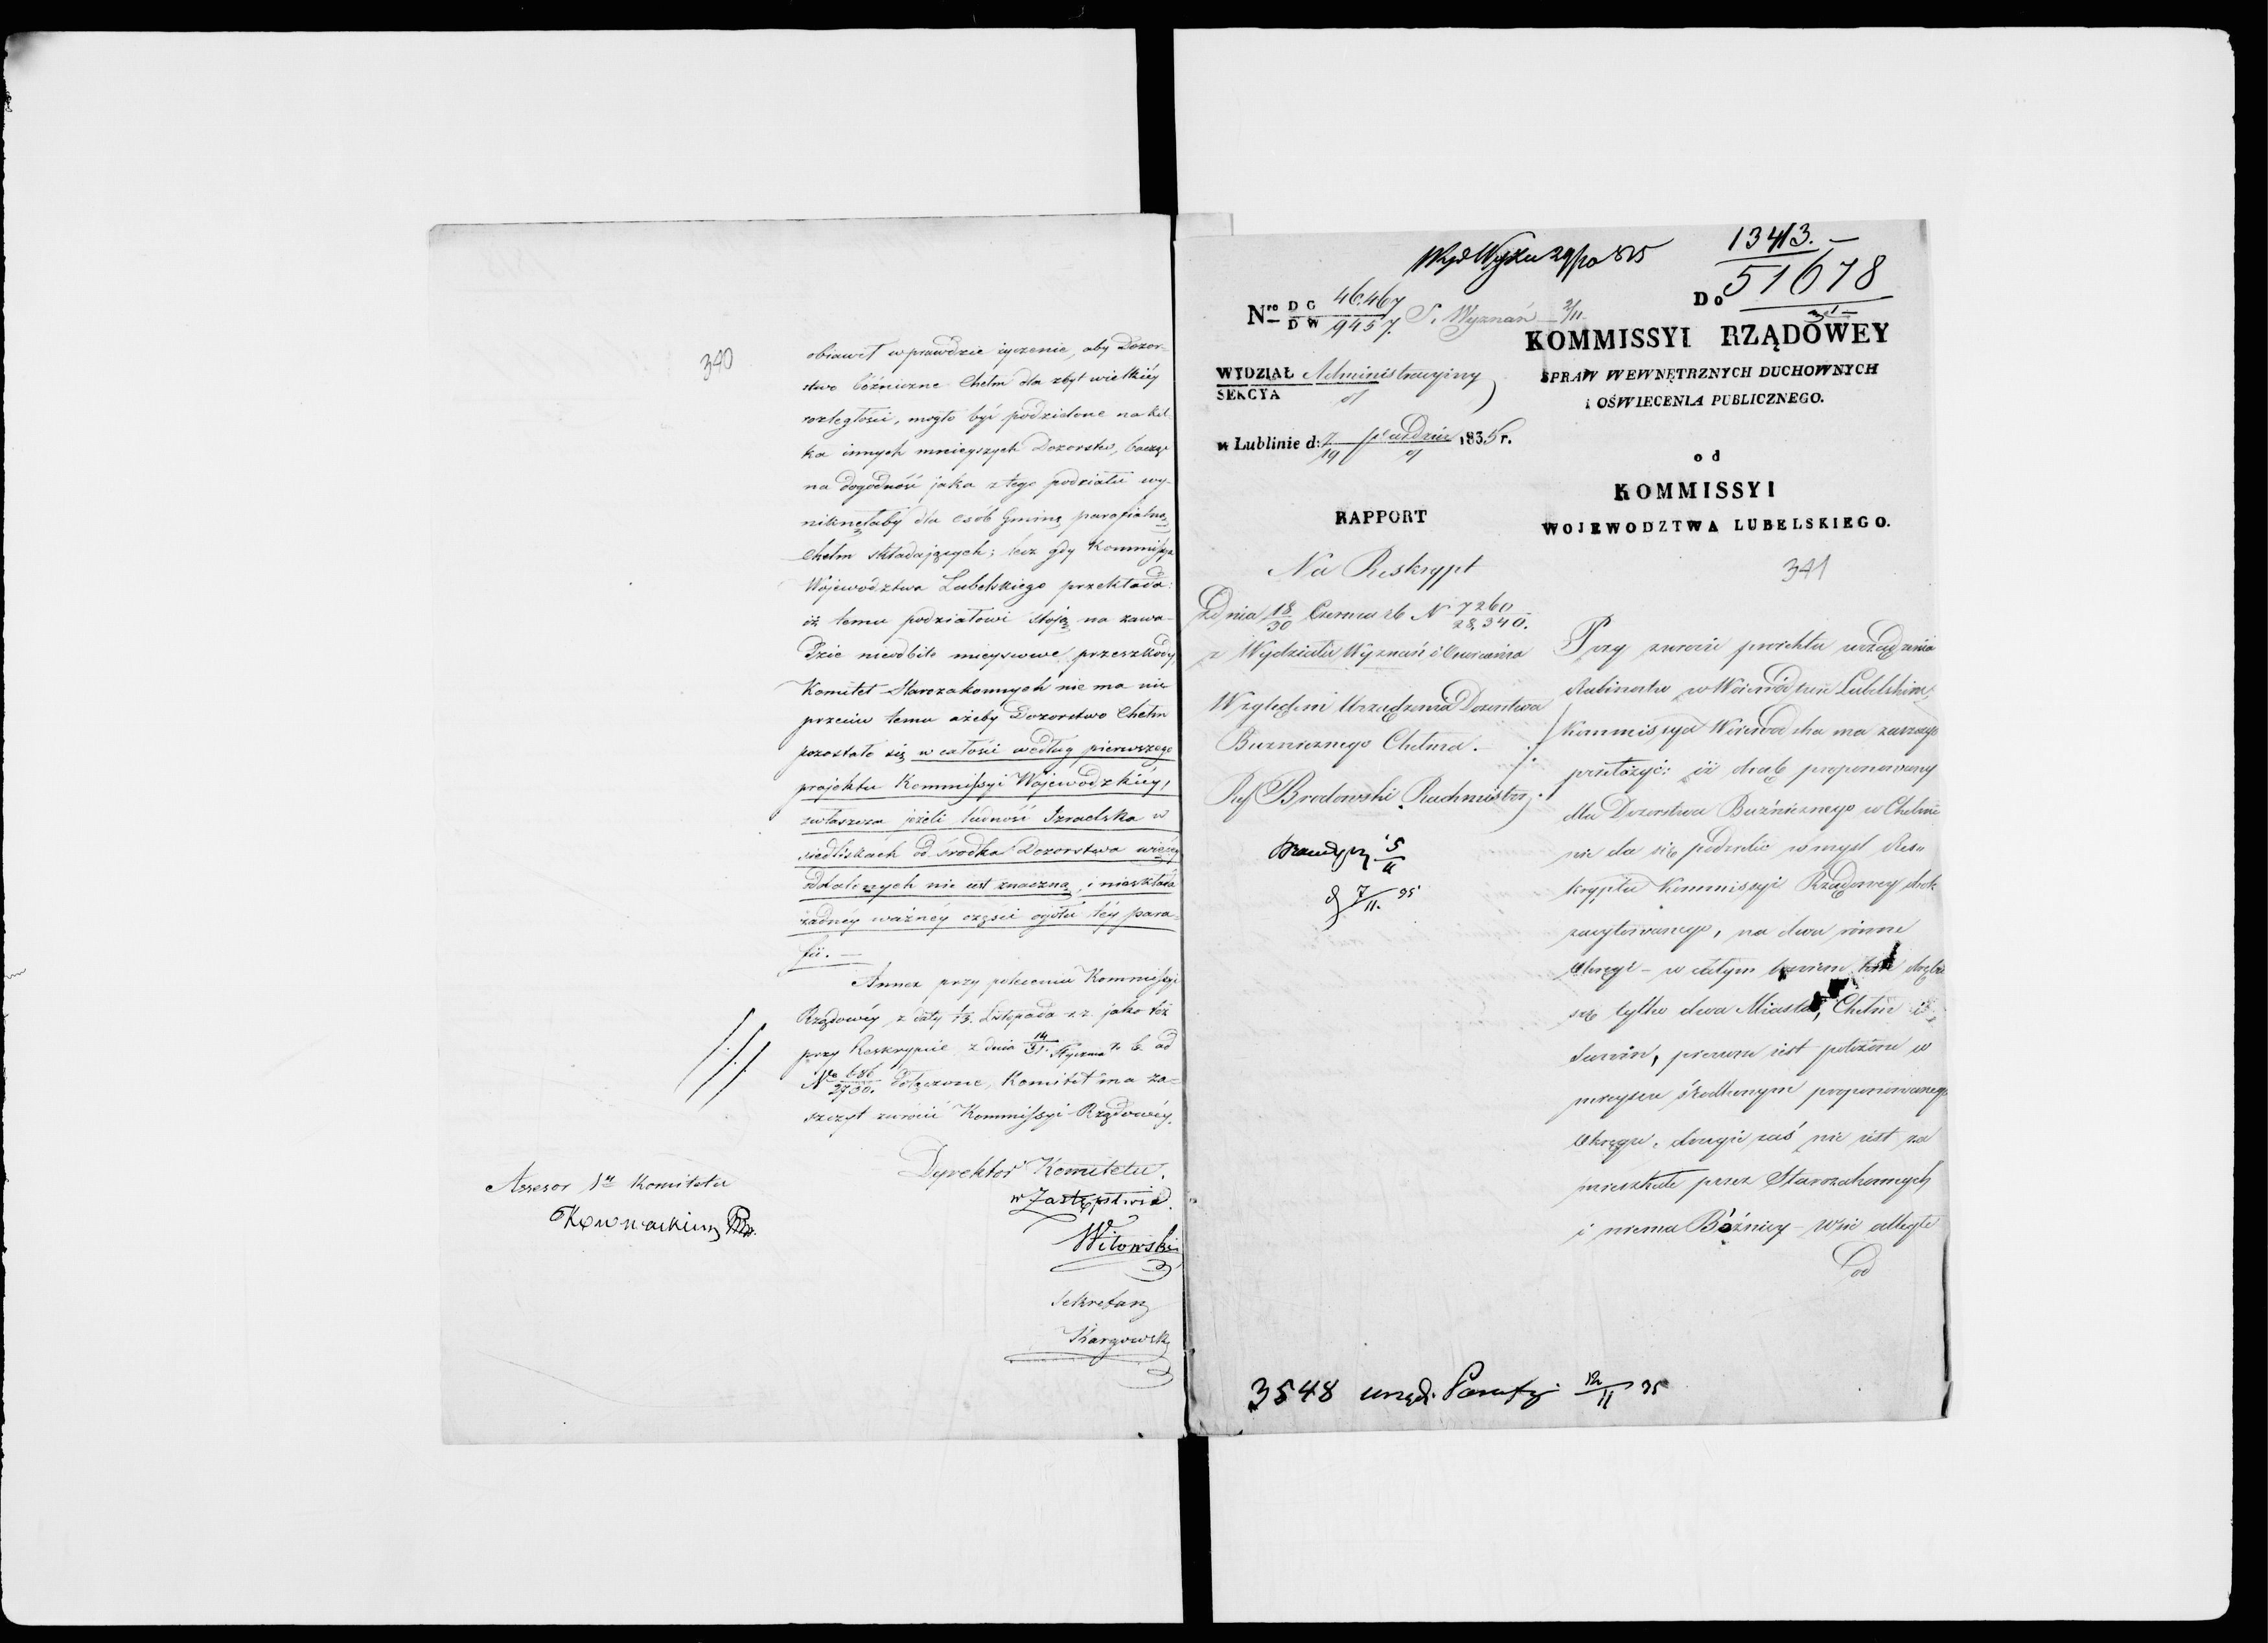 340
obiawił wprawdzie życzenie, aby Dozor-
stwo bóżniczne Chełm dla zbyt wielkiéy
rozległości, mogło być podzielone na kil-
ka innych mnieyszych Dozorstw, bacząc
na dogodność jaka z tego podziału wy-
niknęłaby dla osób Gminę parafialną
Chełm składających; lecz gdy Kommissya
Województwa Lubelskiego przekłada:
iż temu podziałowi stoją na zawa-
dzie nieodbite mieyscowe przeszkody
Komitet Starozakonnych nie ma nic
przeciw temu ażeby Dozorstwo Chełm
pozostało się w całości według pierwszego
projektu Kommissyi Wojewódzkiéy,
zwłaszcza jeżeli ludność Izraelska w
siedliskach od środka Dozorstwa więcéy
oddalonych nie iest znaczną, i nieskłada
żadnéy ważnéy części ogółu téy para-
fii. —
Annexa przy poleceniu Kommissyi
Rządowéy z daty 13. Listopada z. r. jako też
przy Reskrypcie z dnia 14/31. Stycznia r. b. ad
Nro 686/2730. dołączone, Komitet ma za-
szczyt zwrócić Kommissyi Rządowéy.
Dyrektor Komitetu.
w Zastępstwie.
Witowski
Assesor Komitetu
Sekretarz
13413. —
51678
Nro D G 46.467 / D W 9457. S. Wyznań 2/11
Do
KOMMISSYI RZĄDOWEY
SPRAW WEWNĘTRZNYCH DUCHOWNYCH
i OŚWIECENIA PUBLICZNEGO.
WYDZIAŁ Administracyjny
SEKCYA
w Lublinie d: 7/19 Paździer 1835 r.
od
KOMMISSYI
WOJEWODZTWA LUBELSKIEGO.
RAPPORT
341
Na Reskrypt
Z dnia 18/30 Czerwca r b N 7260/28,340.
z Wydziału Wyznań i Oświecenia
Względem Urządzenia Dozorstwa
Bużnicznego Chełma.
Ref Brodowski Rachmistrz.
5/11
7/11. 35
Przy zwrocie proiektu urządzenia
Rabinatu w Woiewództwie Lubelskim,
Kommissya Woiewódzka ma zaszczyt
przełożyć: iż okrąg proponowany
dla Dozorstwa Bużnicznego w Chełmie
nie da się podzielić w myśl Res-
kryptu Kommissyi Rządowey obok
zacytowanego, na dwa równe
Okręgi – w całym bowiem tém okręgu
są tylko dwa Miasta, Chełm i
Sawin, pierwsze iest położone w
mieyscu środkowym proponowanego
Okręgu, drugie zaś nie iest za
mieszkałe przez Starozakonnych
i niema Bóżnicy – Wsie odległe
od
3548 urząd. Parafy. 12/11 35